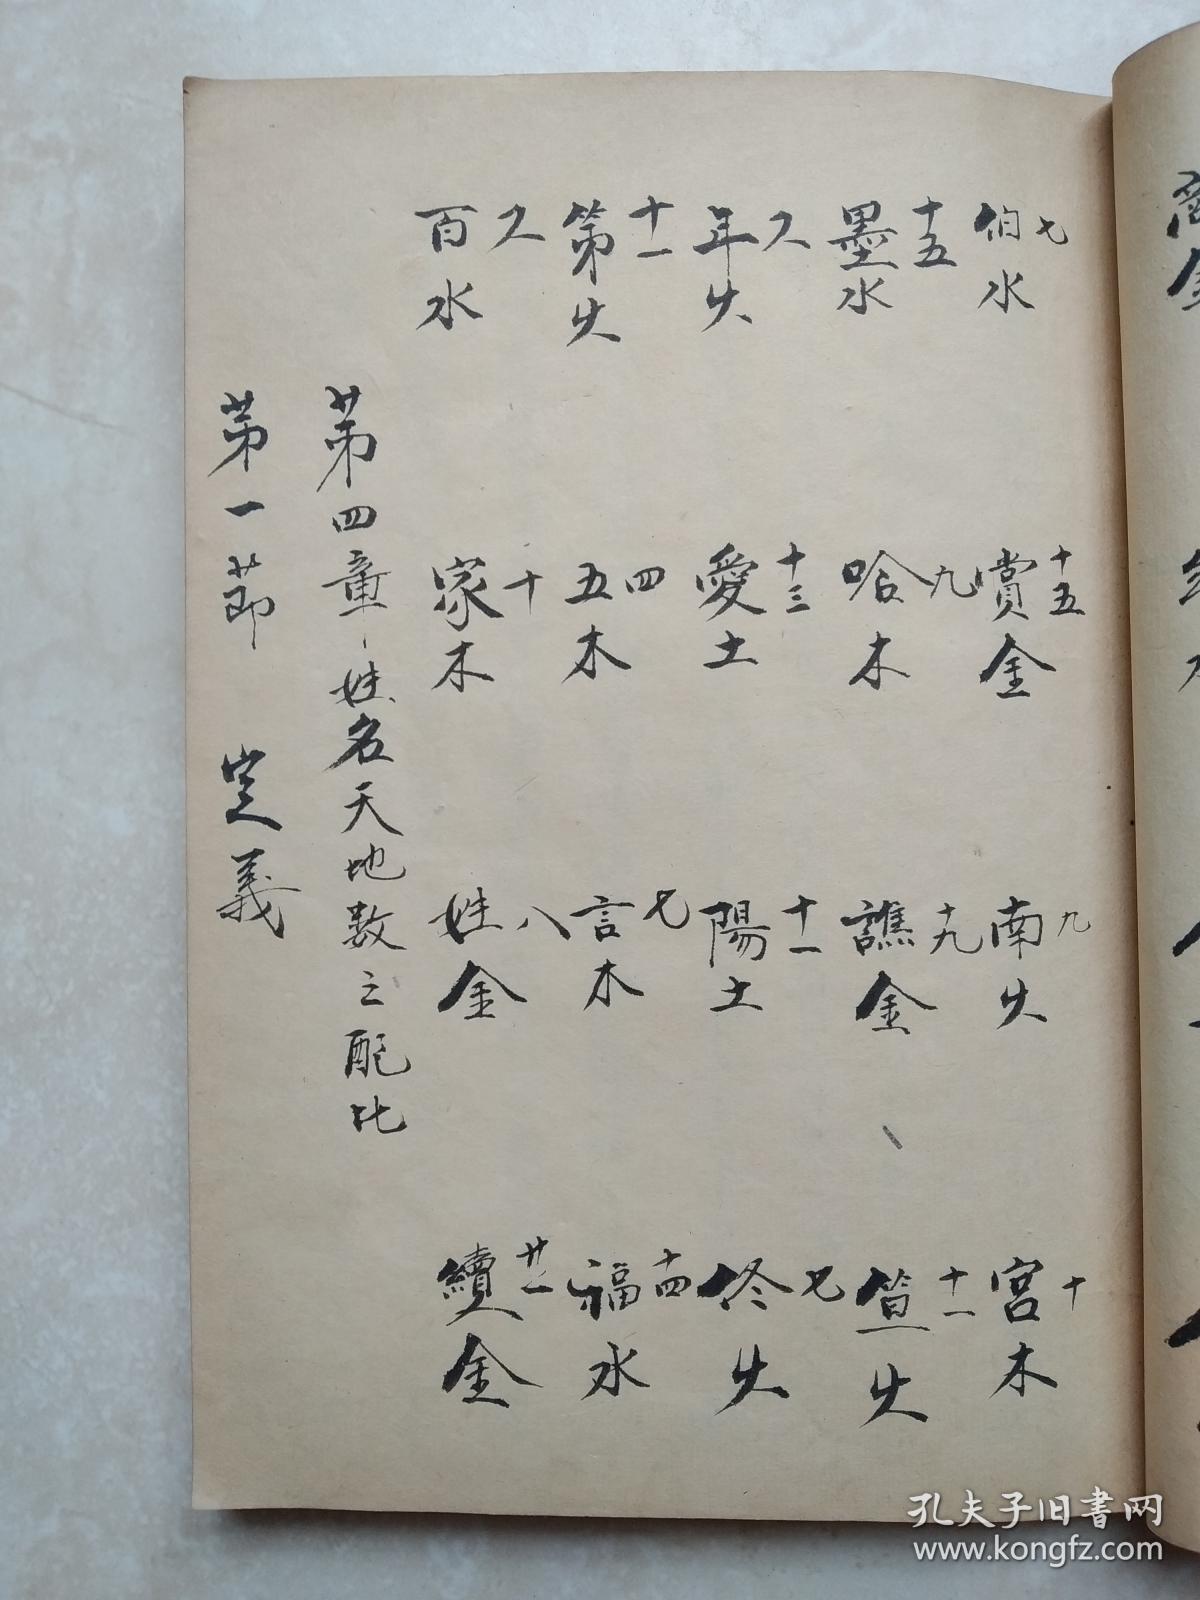 七 十五 九 十
伯水 賞金 南火 宮木
十五 九 十九 十一
墨水 哈木 譙金 笪火
六 十三 十一 七
年火 愛土 陽土 佟火
十一 四 七 十四
第火 五木 言木 福水
六 十 八 廿一
百水 家木 姓金 續金
第四章、姓名天地数之配比
第一節 定義
孔夫子旧書网
www.kongfz.com